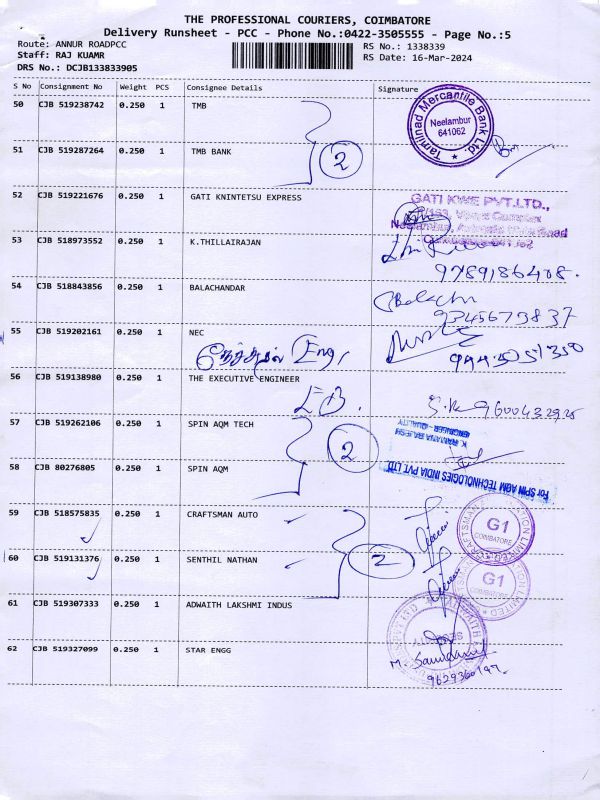 THE PROFESSIONAL COURIERS, COIMBATORE
Delivery Runsheet - PCC - Phone No.:0422-3505555 - Page No.:5
Route: ANNUR ROADPCC RS No.: 1338339
Staff: RAJ KUAMR RS Date: 16-Mar-2024
DRS No.: DCJB133833905
S No Consignment No Weight PCS Consignee Details Signature
50 CJB 519238742 0.250 1 TMB
Tamilnad Mercantile Bank Ltd.
Neelambur
641062
51 CJB 519287264 0.250 1 TMB BANK
2
52 CJB 519221676 0.250 1 GATI KNINTETSU EXPRESS
GATI KWE PVT.LTD.,
53 CJB 518973552 0.250 1 K.THILLAIRAJAN
9789186408.
54 CJB 518843856 0.250 1 BALACHANDAR
Balachn
9345673837
55 CJB 519202161 0.250 1 NEC
Eng,
56 CJB 519138980 0.250 1 THE EXECUTIVE ENGINEER
EB.
57 CJB 519262106 0.250 1 SPIN AQM TECH
2
K. RAMANA RAJESH
ENGINEER - QUALITY
58 CJB 80276805 0.250 1 SPIN AQM
For SPIN AQM TECHNOLOGIES INDIA PVT. LTD
59 CJB 518575835 0.250 1 CRAFTSMAN AUTO
G1
COIMBATORE
60 CJB 519131376 0.250 1 SENTHIL NATHAN
2
G1
COIMBATORE
61 CJB 519307333 0.250 1 ADWAITH LAKSHMI INDUS
SECURITY
62 CJB 519327099 0.250 1 STAR ENGG
9629360197.